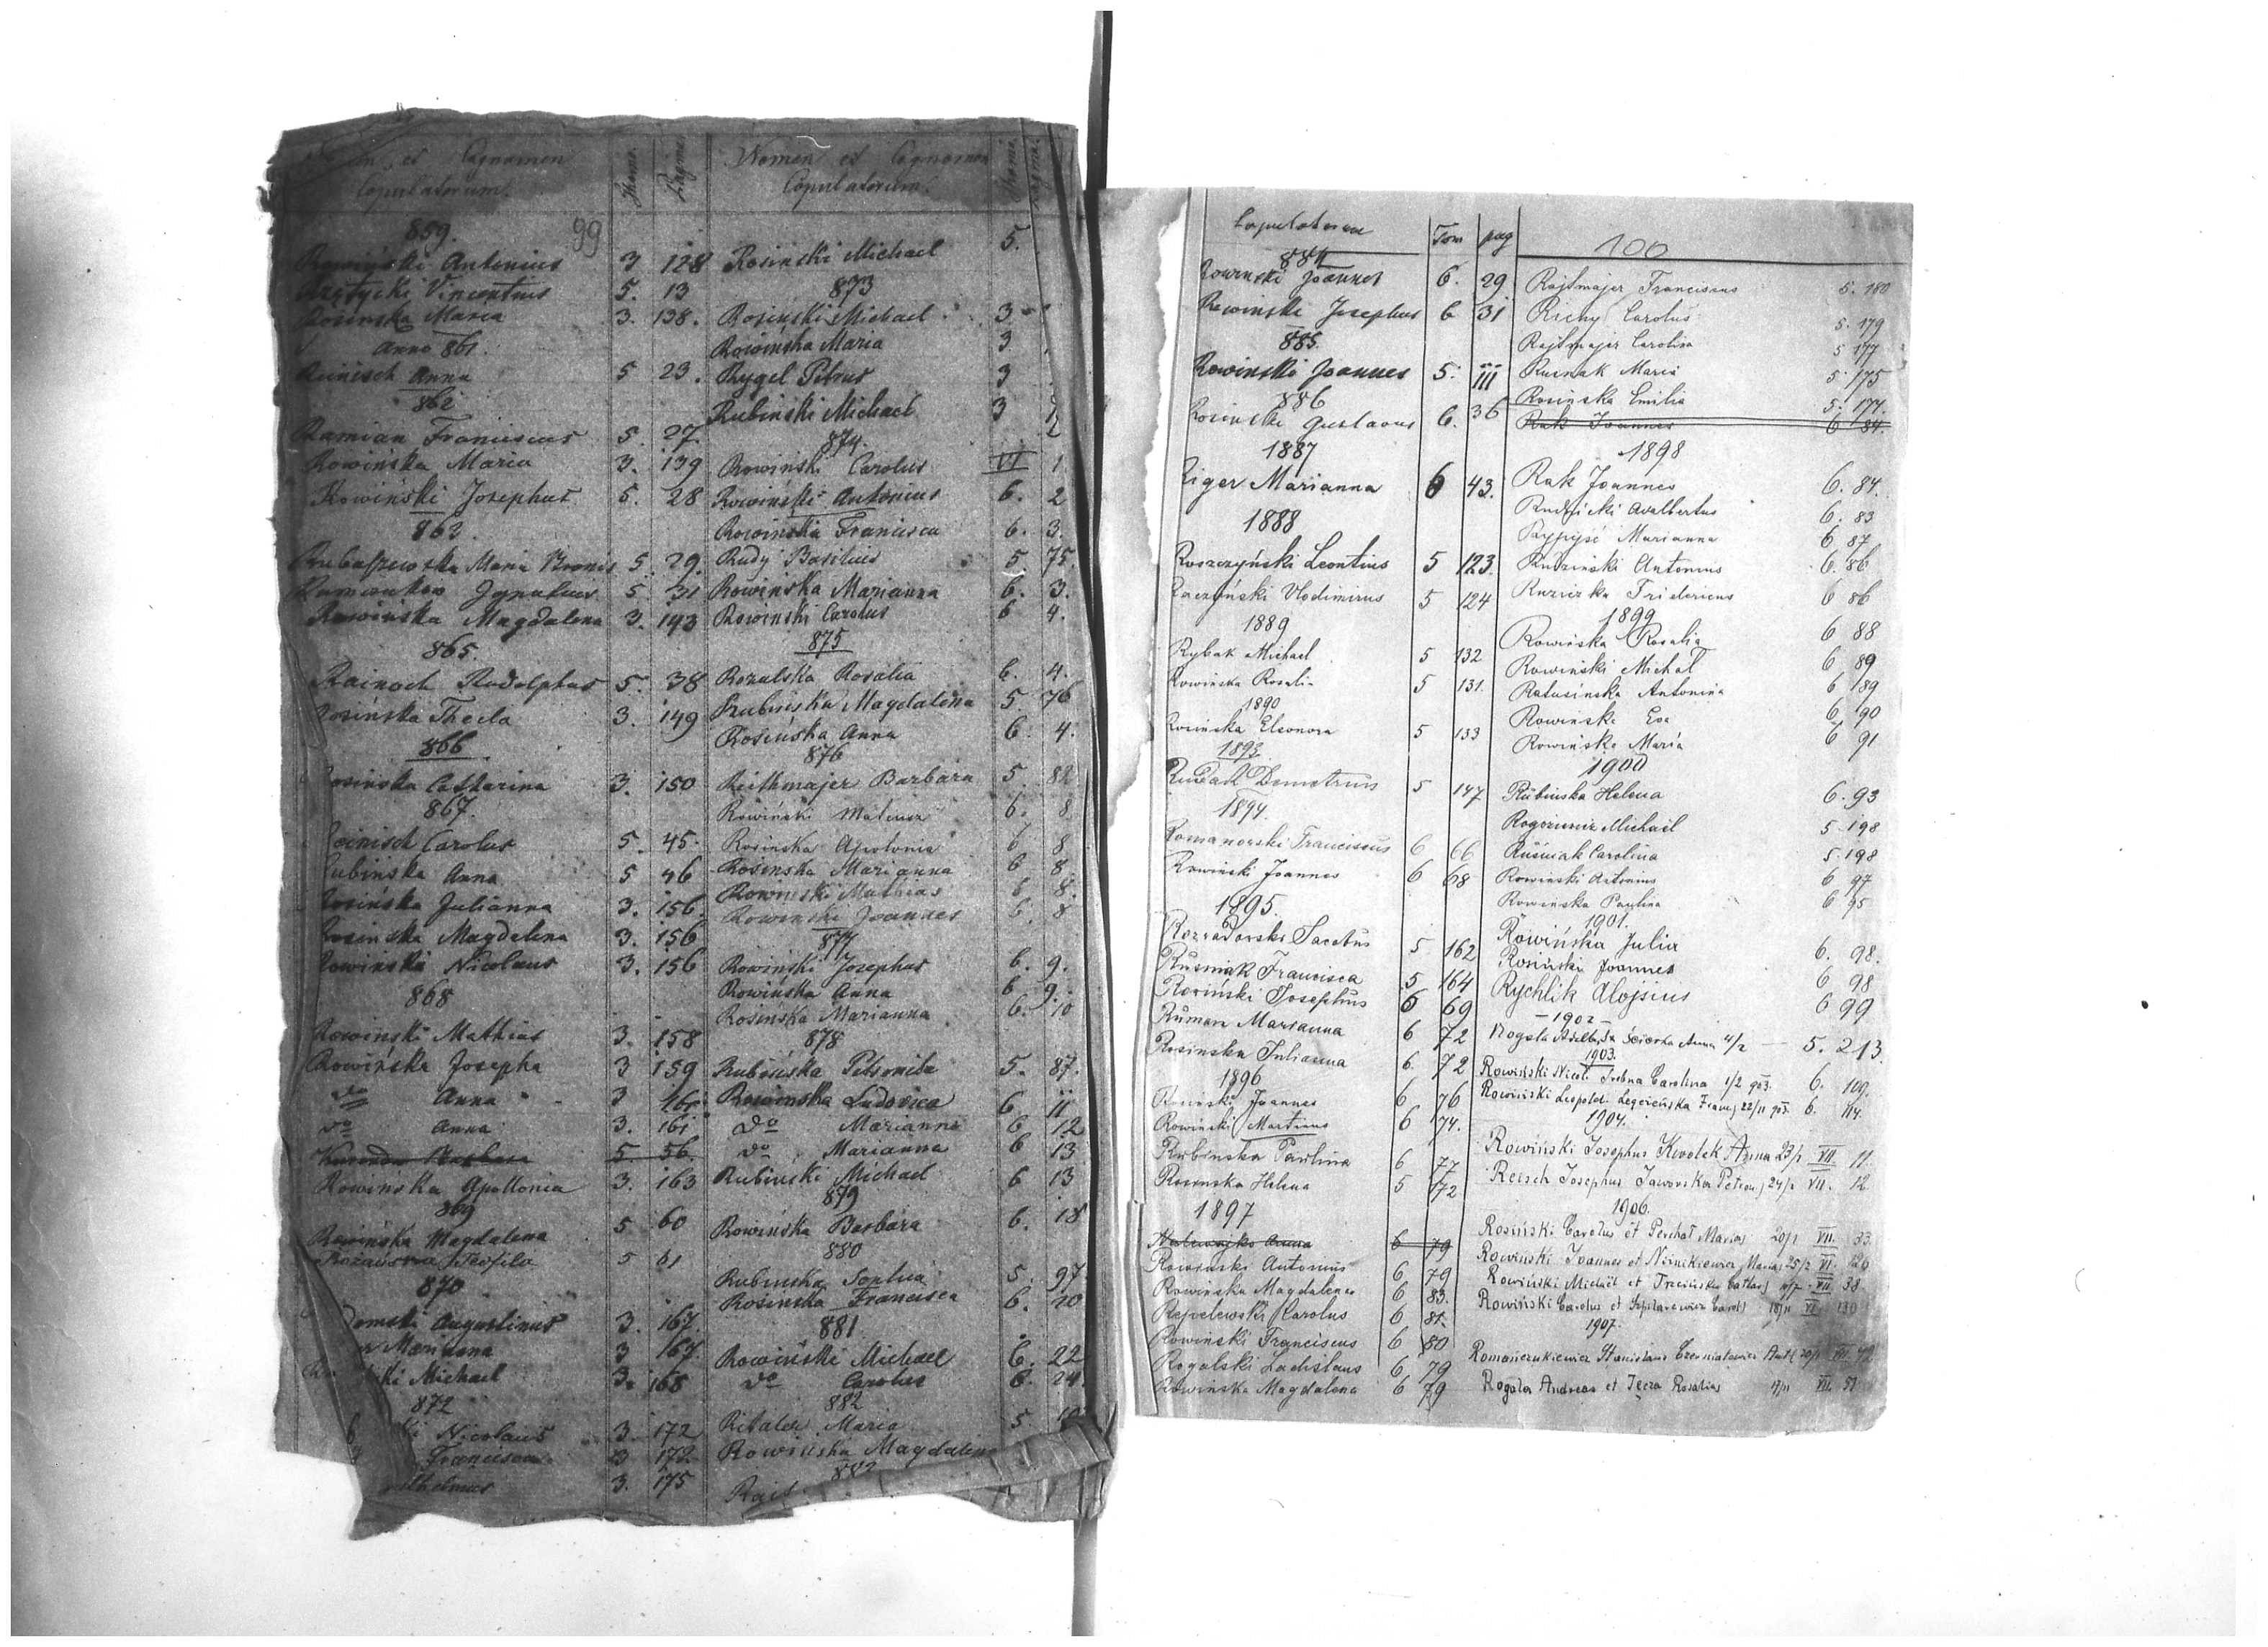 et Cognomen Copulatorum. Thomo. Pagina
859. 99
Rowiński Antonius 3 128
Vincentius 5. 13
Rosińska Maria 3. 138.
Anno 861.
Reinisch Anna 5 23.
862
Ramian Franciscus 5. 27.
Rowińska Maria 3. 139
Rowiński Josephus 5. 28
862.
Maria Bronis 5. 29.
Ignatius 5. 31
Rowińska Magdalena 3. 143
865.
Rainoch Rudolphus 5. 38
Rosińska Thecla 3. 149
866
Rosińska Catharina 3. 150
867.
Reinisch Carolus 5. 45.
Rubińska Anna 5 46
Rosińska Julianna 3. 156.
Rosińska Magdalena 3. 156
Rowiński Nicolaus 3. 156
868
Rowiński Mathias 3. 158
Rowińska Josepha 3 159
do Anna 3 161
do Anna 3. 161
5. 56.
Rowińska Apollonia 3. 163
869
Rowińska Magdalena 5 60
Teofila 5 61
870
Augustinus 3. 167
3 167.
ski Michael 3. 168
872
Nicolaus 3. 172
Francisca 3 172.
3. 175
Nomen et Cognomen Copulatorum. Thomo. Pagina.
Rosiński Michael 5.
873
Rosiński Michael 3
Rowińska Maria 3
Rygel Petrus 3
Rubiński Michael 3
874.
Rowiński Carolus VI 1
Rowiński Antonius 6. 2
Rowińska Francisca 6. 3.
Rudy Basilius 5 75.
Rowińska Marianna 6. 3.
Rowiński Carolus 6 4.
875
Rozalska Rosalia 6. 4.
Rubińska Magdalena 5. 76
Rosińska Anna 6. 4.
876
Reithmajer Barbara 5. 82
Rowiński 6. 8
Rosińska Apolonia 6 8
Rosińska Marianna 6 8
Rowiński Mathias 6 8.
Rowiński Joannes 6. 8
877
Rowiński Josephus 6. 9.
Rowińska Anna 6 9.
Rosińska Marianna 6. 10
878
Rubińska Petronila 5. 87.
Rowińska Ludovica 6 11
do Marianna 6 12
do Marianna 6 13
Rubiński Michael 6 13
879
Rowińska Barbara 6. 18
880
Rubińska Sophia 5. 97
Rosińska Francisca 6. 20
881
Rowiński Michael 6. 22
do Carolus 6. 24.
882
Maria 5.
Rowińska Magdalena
882
Copulatorum Tom pag
884
Rowiński Joannes 6. 29
Rowiński Josephus 6 31
885.
Rowiński Joannes 5. 111
886
Rosiński Gustavus 6. 36
1887
Riger Marianna 6 43.
1888
Roszczyński Leontius 5 123.
Vlodimirus 5 124
1889
Rybak Michael 5 132
Rowińska Rosalia 5 131.
1890
Rosińska Eleonora 5 133
1893
Demetrius 5 147
1894.
Romanowski Franciscus 6 66
Rowiński Joannes 6 68
1895.
Jacobus 5 162
Rusniak Francisca 5 164
Rosiński Josephus 6 69
Ruman Marianna 6 72
Rosinska Julianna 6. 72
1896
Rowiński Joannes 6 76
Rowiński Martinus 6 74.
Rubinska Paulina 6 77
Rowińska Helena 5 172
1897
Anna 6 79
Rowiński Antonius 6 79
Rowińska Magdalena 6 83.
Repelewski Carolus 6 81.
Rowiński Franciscus 6 80
Rogalski Ladislaus 6 79
Rowińska Magdalena 6 79
100
Rajtmajer Franciscus 5. 180
Richy Carolus 5. 179
Rajtmajer Carolina 5 177
Rusnak Maria 5. 175
Rosinska Emilia 5. 177.
Rak Joannes 6 84.
1898
Rak Joannes 6. 84.
Rudzicki Adalbertus 6. 83
Marianna 6 87
Rudziński Antonius 6. 86
Ruzicka Fridericus 6 86
1899
Rowińska Rosalia 6 88
Rowiński Michał 6 89
Ratusińska Antonina 6 89
Rowińska Eva 6 90
Rowińska Maria 6 91
1900
Rubinska Helena 6. 93
Michael 5. 198
Rusniak Carolina 5. 198
Rowiński Antonius 6 97
Rowińska Paulina 6 95
1901.
Rowińska Julia 6. 98.
Rosiński Joannes 6 98
Rychlik Alojsius 6 99
1902
Anna 4/2 5. 213.
1903.
Rowiński Nicol. Carolina 1/2 903. 6. 109.
Rowiński Leopold. 22/11 903. 6. 114.
1904.
Rowiński Josephus Anna 23/2 VII. 11.
Reisch Josephus Jaworska Petron. 24/2 VII. 12
1906.
Rosiński Carolus et Maria 20/1 VII. 33.
Rowiński Joannes et Maria 25/2 VI. 126
Rowiński Michael et VII. 38.
Rowiński Carolus et 18/11 VI. 130
1907.
Romańczukiewicz Stanislaus VII. 42
Rogala Andreas et Rosalia 17/11 VII. 51